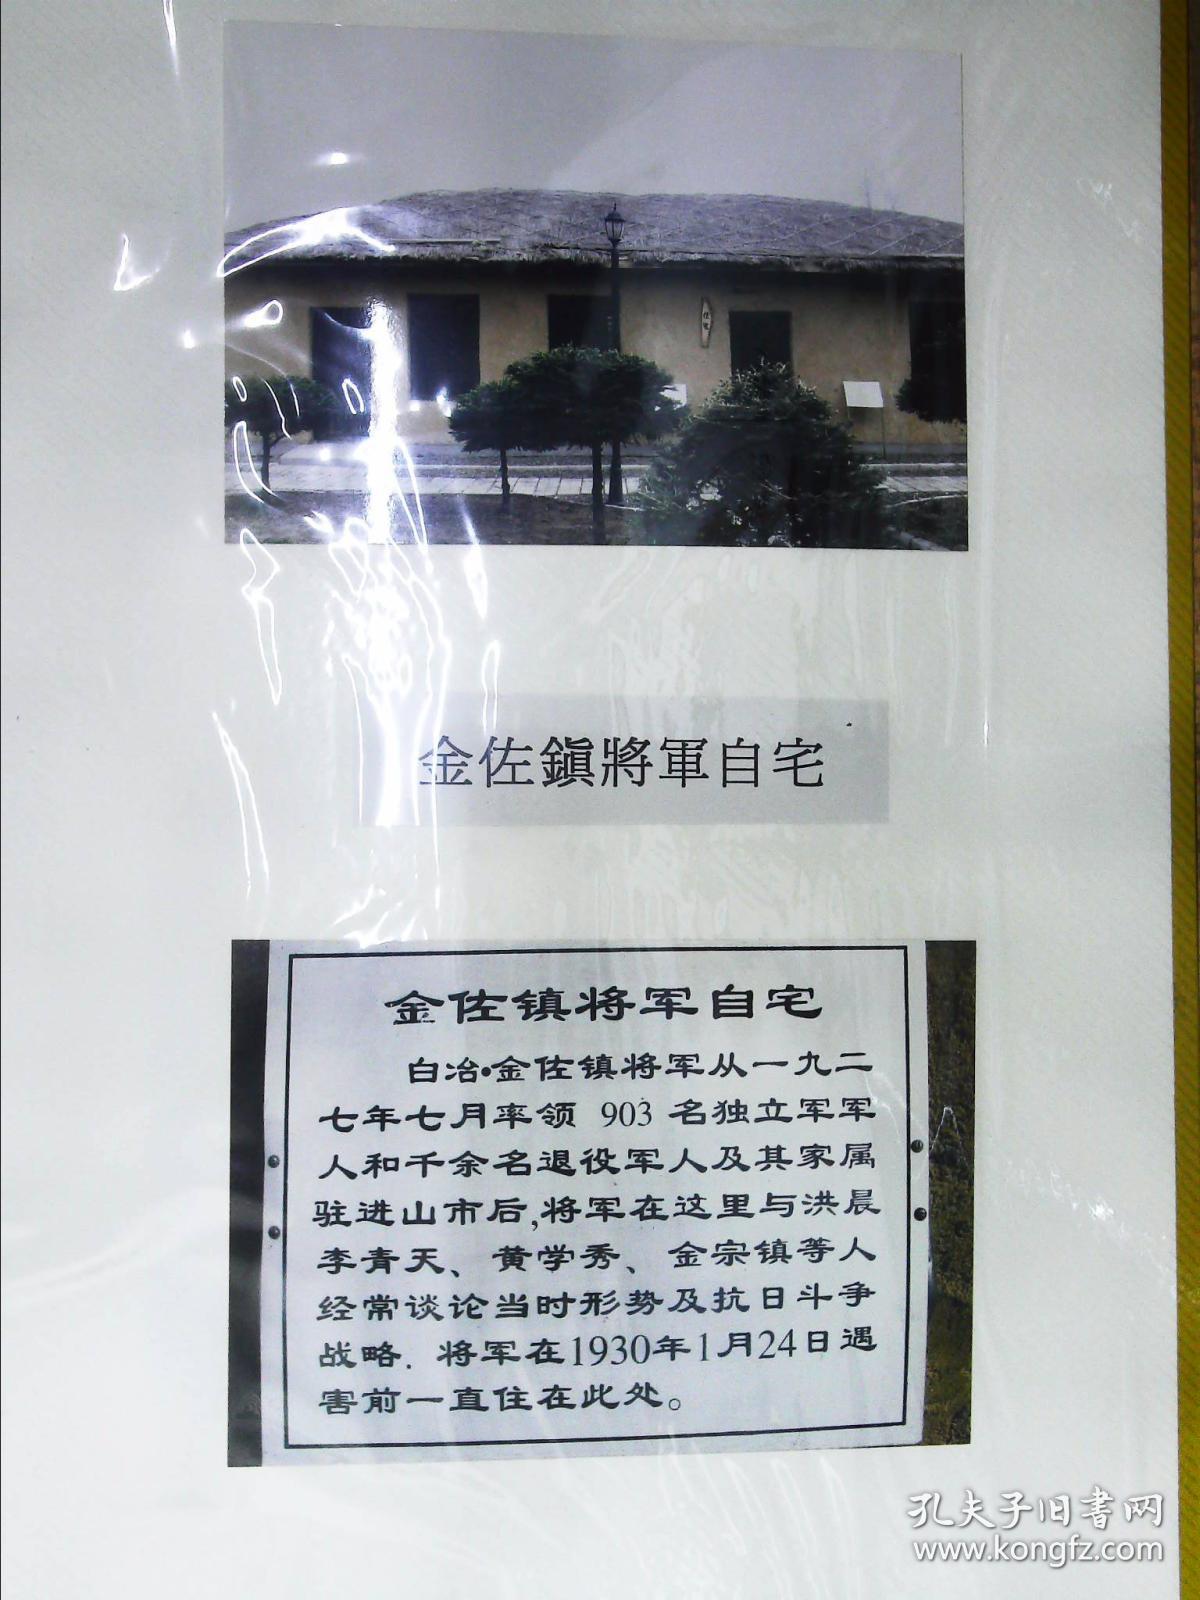 金佐鎭將軍自宅
金佐镇将军自宅
白冶·金佐镇将军从一九二
七年七月率领 903 名独立军军
人和千余名退役军人及其家属
驻进山市后,将军在这里与洪晨
李青天、黄学秀、金宗镇等人
经常谈论当时形势及抗日斗争
战略. 将军在1930年1月24日遇
害前一直住在此处。
孔夫子旧书网
www.kongfz.com